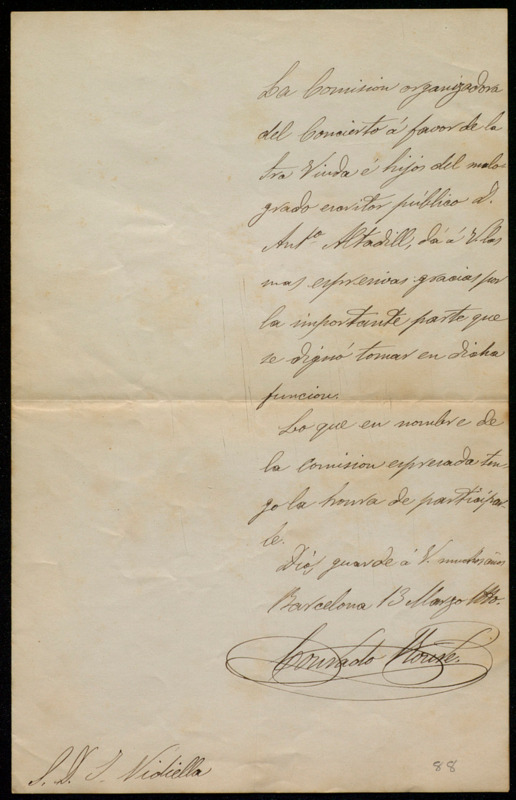 La Comision organizadora
del Concierto á favor de la
tra Viuda é hijos del malo-
grado escritor público D.
Antº Altadill, dá á V. las
mas espresivas gracias por
la importante parte que
se dignó tomar en dicha
funcion.
Lo que en nombre de
la comision espresada ten-
go la honra de participar-
le.
Dios guarde á V. muchos años
Barcelona 13 Marzo 1880.
Conrado Roure.
S. D. J. Vidiella
88